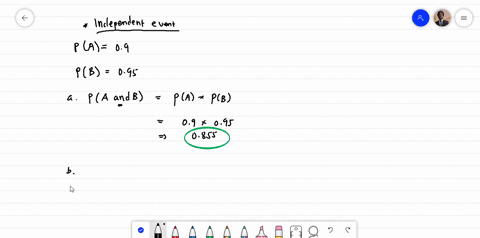 * Independent event
P(A) = 0.9
P(B) = 0.95
a. P(A and B) = P(A) * P(B)
= 0.9 × 0.95
⇒ 0.855
b.